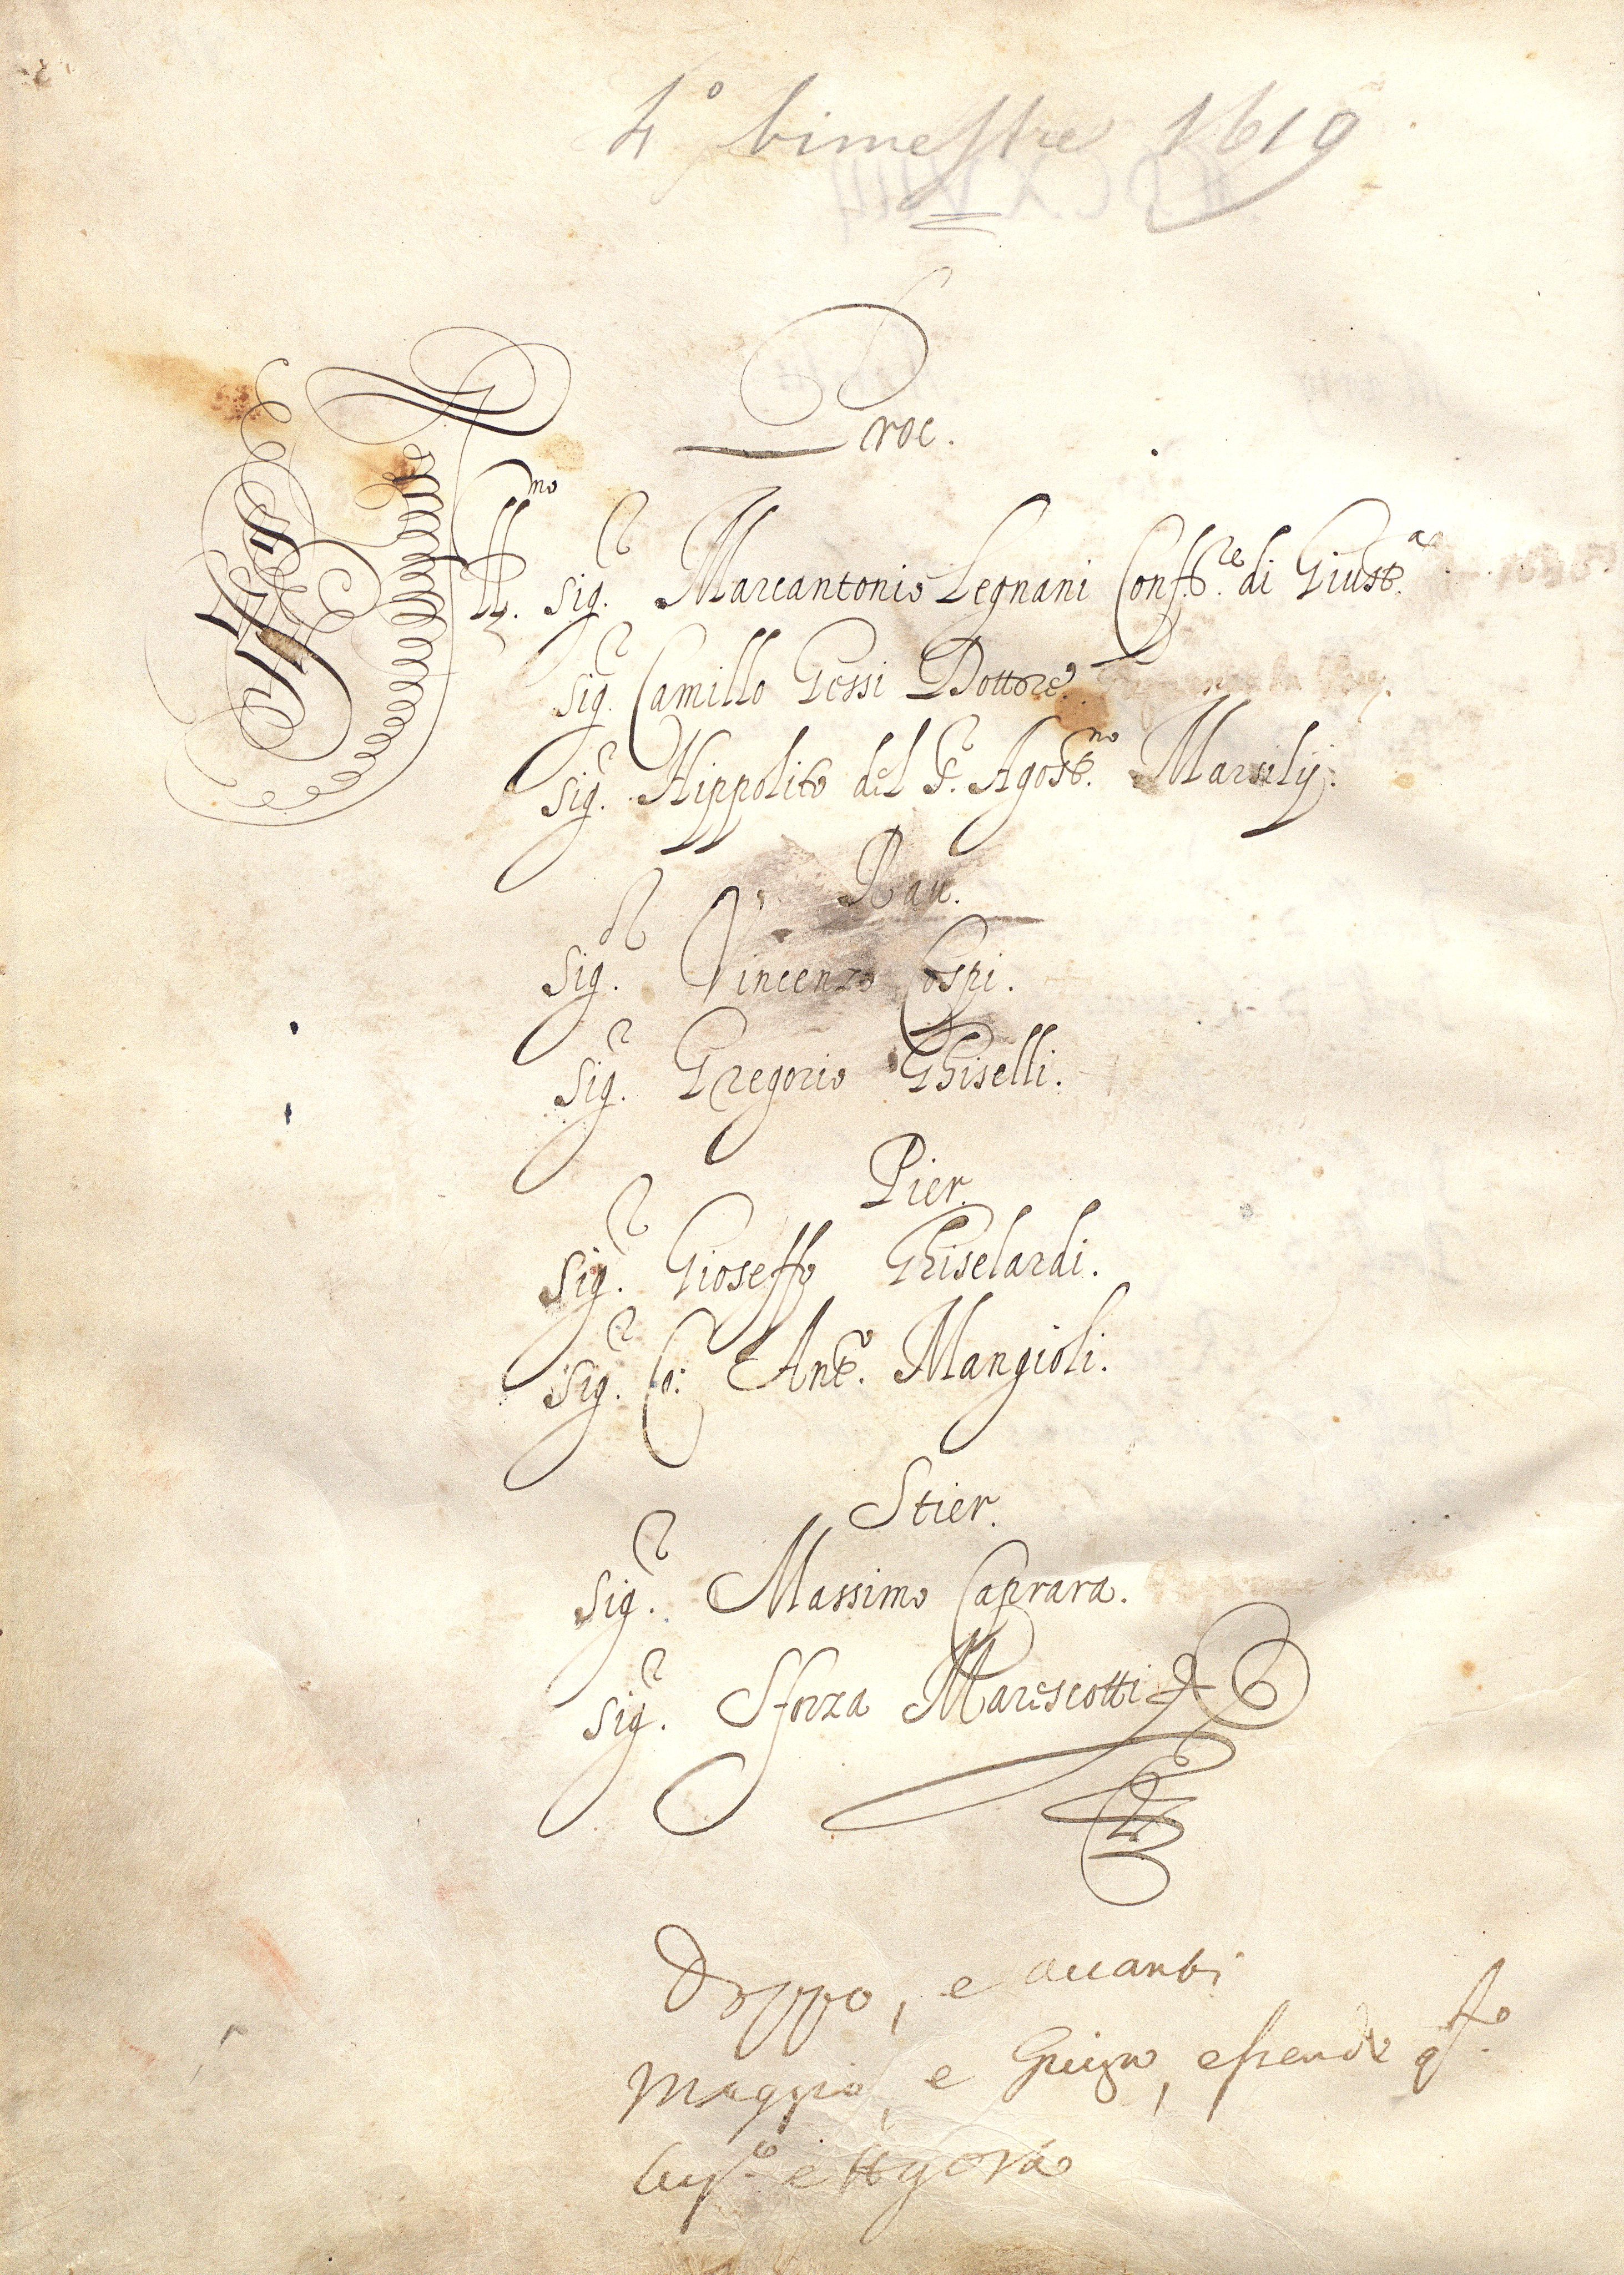 4º bimestre 1619
Proc.
Ill.mo Sig.r Marcantonio Legnani Conf.re di Giust.a
Sig.r Camillo Gessi Dottore.
Sig.r Hippolito del S.r Agost.no Marsilij.
Rau.
Sig.r Vincenzo Cospi.
Sig.r Gregorio Ghiselli.
Pier.
Sig.r Gioseffo Ghiselardi.
Sig.r Co: Ant.o Mangioli.
Stier.
Sig.r Massimo Caprara.
Sig.r Sforza Marescotti
Doppo, e auanti
Maggio, e Giugno, essendo q.sto